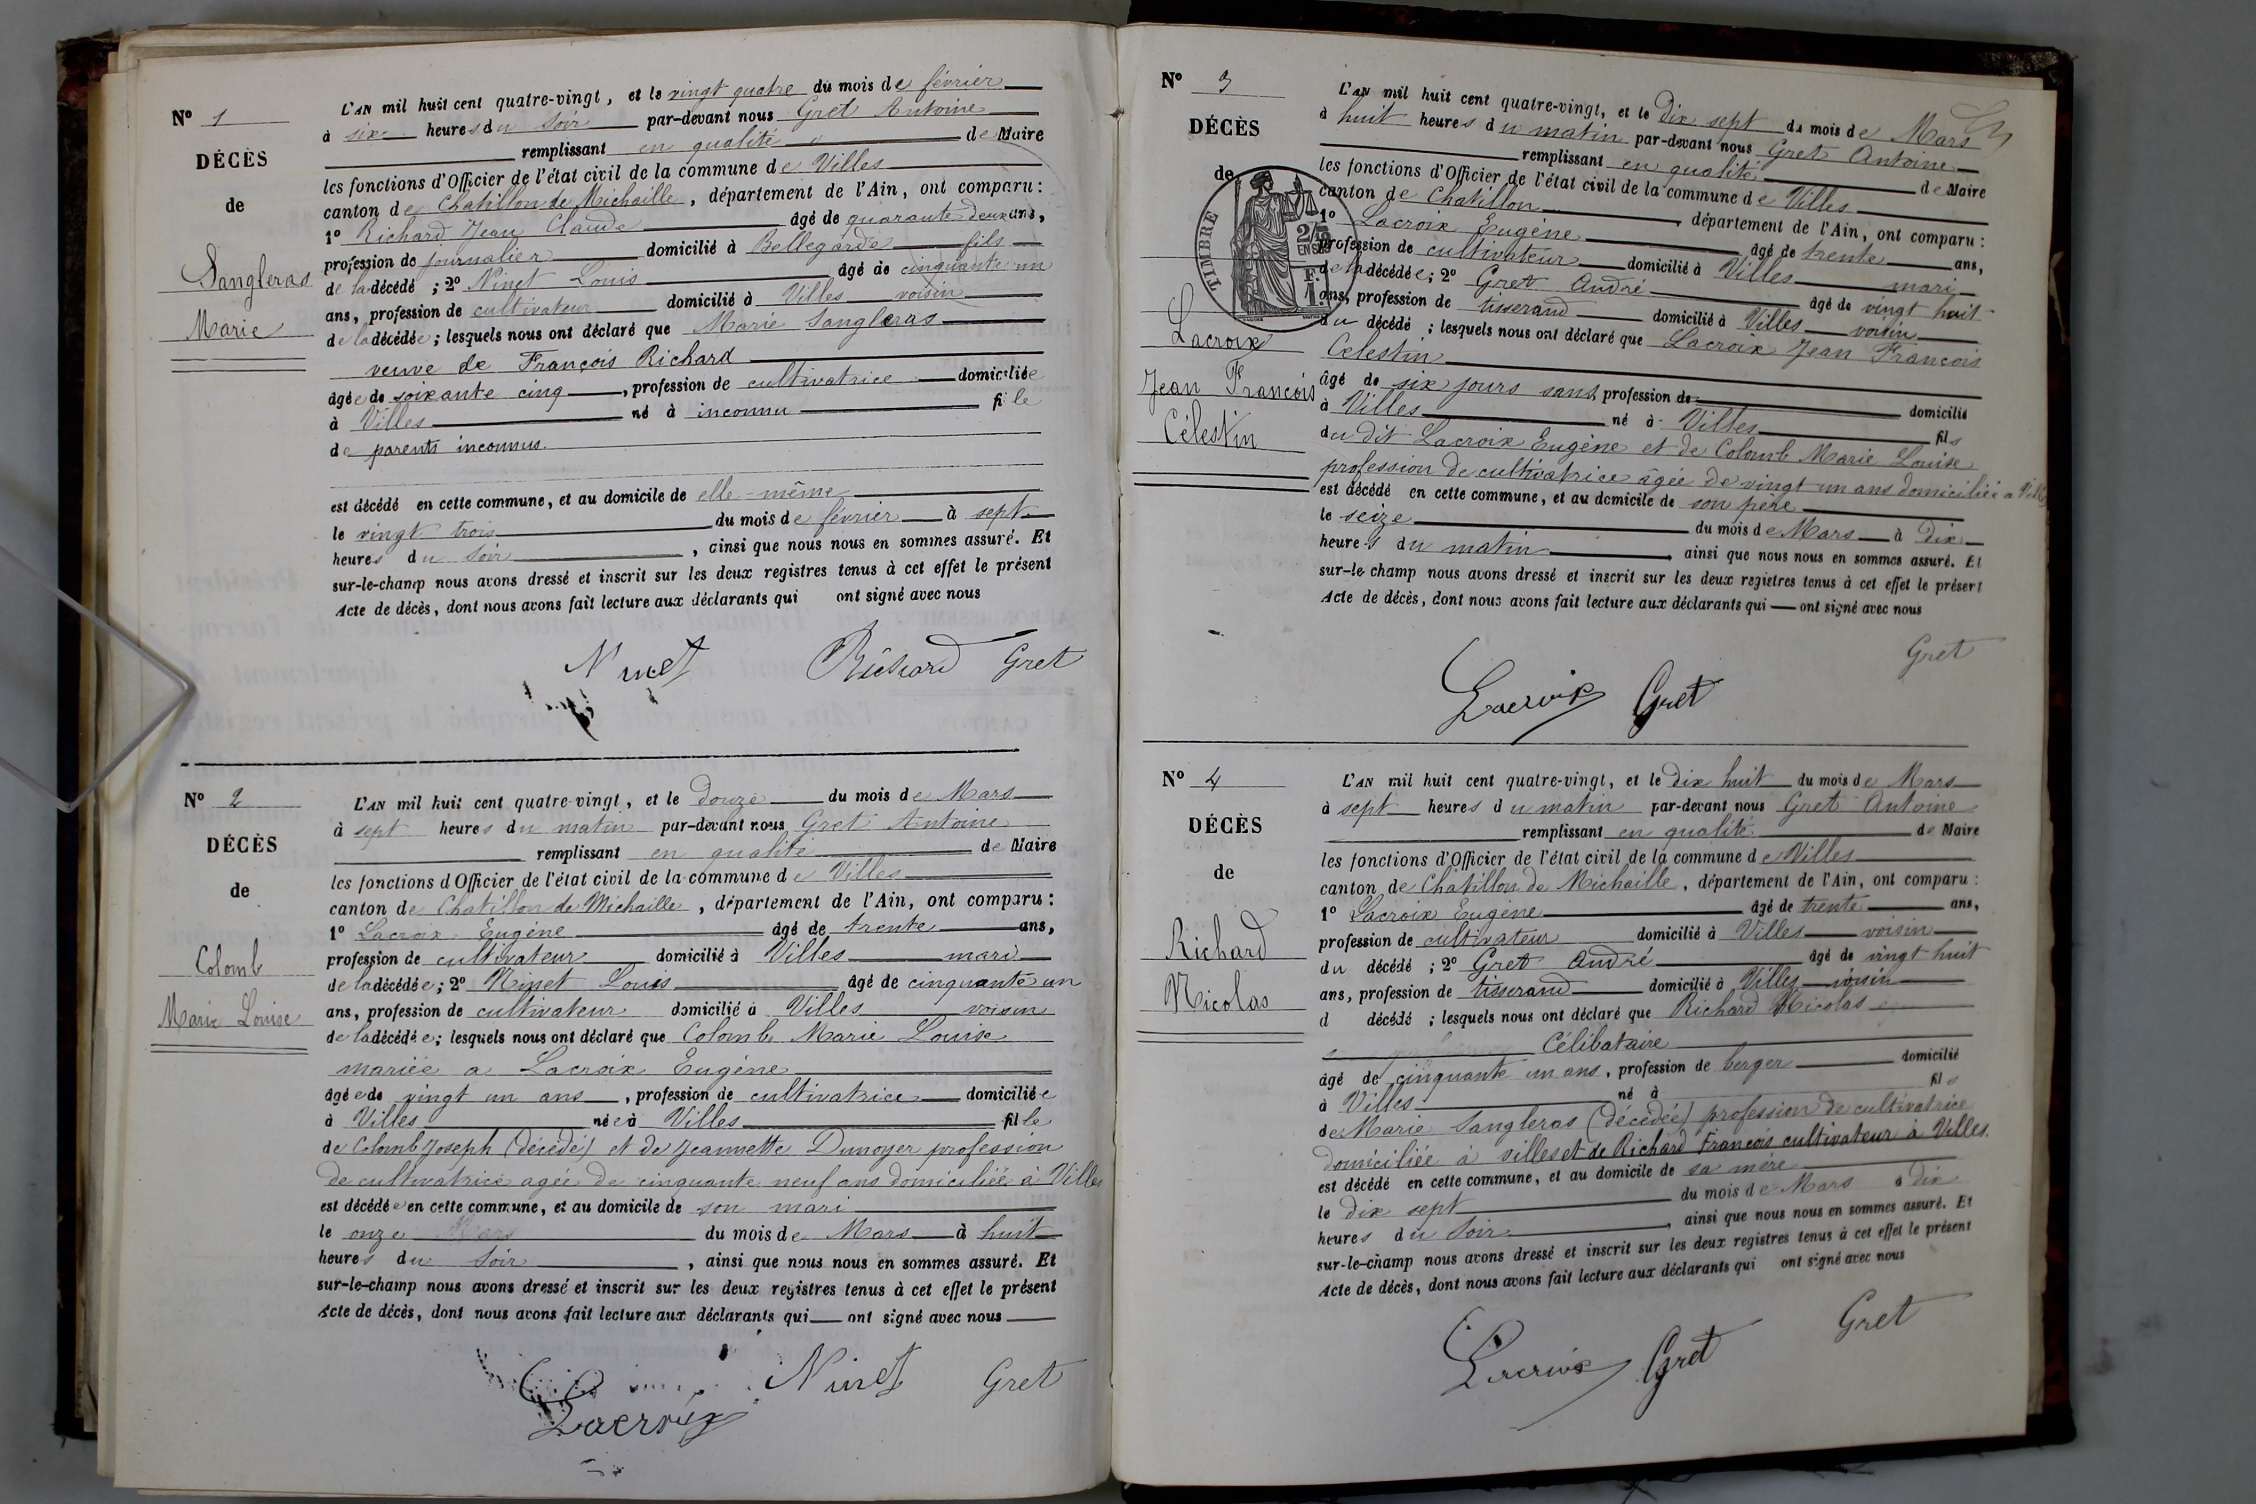 N° 1
DÉCÈS
de
Sangleras
Marie
L'AN mil huit cent quatre-vingt, et le vingt quatre du mois de février
à six heures du soir par-devant nous Gret Antoine
remplissant en qualité de Maire
les fonctions d'Officier de l'état civil de la commune de Villes
canton de Chatillon de Michaille, département de l'Ain, ont comparu :
1° Richard Jean Claude âgé de quarante deux ans,
profession de journalier domicilié à Bellegarde fils
de la décédé ; 2° Ninet Louis âgé de cinquante un
ans, profession de cultivateur domicilié à Villes voisin
de la décédée ; lesquels nous ont déclaré que Marie Sangleras
veuve de François Richard
âgée de soixante cinq, profession de cultivatrice domiciliée
à Villes né à inconnu fille
de parents inconnus
est décédé en cette commune, et au domicile de elle-même
le vingt trois du mois de février à sept
heures du soir, ainsi que nous nous en sommes assuré. Et
sur-le-champ nous avons dressé et inscrit sur les deux registres tenus à cet effet le présent
Acte de décès, dont nous avons fait lecture aux déclarants qui ont signé avec nous
Ninet Richard Gret
N° 2
DÉCÈS
de
Colomb
Marie Louise
L'AN mil huit cent quatre-vingt, et le douze du mois de Mars
à sept heures du matin par-devant nous Gret Antoine
remplissant en qualité de Maire
les fonctions d'Officier de l'état civil de la commune de Villes
canton de Chatillon de Michaille, département de l'Ain, ont comparu :
1° Lacroix Eugène âgé de trente ans,
profession de cultivateur domicilié à Villes mari
de la décédée ; 2° Ninet Louis âgé de cinquante un
ans, profession de cultivateur domicilié à Villes voisin
de la décédée ; lesquels nous ont déclaré que Colomb Marie Louise
mariée a Lacroix Eugène
âgée de vingt un ans, profession de cultivatrice domiciliée
à Villes née à Villes fille
de Colomb Joseph (décédé) et de Jeannette Dunoyer profession
de cultivatrice agée de cinquante neuf ans domiciliée à Villes
est décédée en cette commune, et au domicile de son mari
le onze Mars du mois de Mars à huit
heures du soir, ainsi que nous nous en sommes assuré. Et
sur-le-champ nous avons dressé et inscrit sur les deux registres tenus à cet effet le présent
Acte de décès, dont nous avons fait lecture aux déclarants qui ont signé avec nous
Lacroix Ninet Gret
N° 3
DÉCÈS
de
TIMBRE
2/10
EN SUS
F.
1.
Lacroix
Jean François
Célestin
L'AN mil huit cent quatre-vingt, et le Dix sept du mois de Mars
à huit heures du matin par-devant nous Gret Antoine
remplissant en qualité de Maire
les fonctions d'Officier de l'état civil de la commune de Villes
canton de Chatillon département de l'Ain, ont comparu :
1° Lacroix Eugène âgé de trente ans,
profession de cultivateur domicilié à Villes mari
de la décédée ; 2° Gret André âgé de vingt huit
ans, profession de tisserand domicilié à Villes voisin
du décédé ; lesquels nous ont déclaré que Lacroix Jean François
Celestin
âgé de six jours sans profession de domicilié
à Villes né à Villes fils
du dit Lacroix Eugène et de Colomb Marie Louise
profession de cultivatrice agée de vingt un ans domiciliée a Villes
est décédé en cette commune, et au domicile de son père
le seize du mois de Mars à Dix
heures du matin, ainsi que nous nous en sommes assuré. Et
sur-le-champ nous avons dressé et inscrit sur les deux registres tenus à cet effet le présent
Acte de décès, dont nous avons fait lecture aux déclarants qui ont signé avec nous
Gret
Lacroix Gret
N° 4
DÉCÈS
de
Richard
Nicolas
L'AN mil huit cent quatre-vingt, et le dix huit du mois de Mars
à sept heures du matin par-devant nous Gret Antoine
remplissant en qualité de Maire
les fonctions d'Officier de l'état civil de la commune de Villes
canton de Chatillon de Michaille, département de l'Ain, ont comparu :
1° Lacroix Eugène âgé de trente ans,
profession de cultivateur domicilié à Villes voisin
du décédé ; 2° Gret André âgé de vingt huit
ans, profession de tisserand domicilié à Villes voisin
d décédé ; lesquels nous ont déclaré que Richard Nicolas
Célibataire
âgé de cinquante un ans, profession de berger domicilié
à Villes né à fils
de Marie Sangleras (décédée) profession de cultivatrice
domiciliée à villes et de Richard François cultivateur à Villes.
est décédé en cette commune, et au domicile de sa mère
le dix sept du mois de Mars à dix
heures du soir, ainsi que nous nous en sommes assuré. Et
sur-le-champ nous avons dressé et inscrit sur les deux registres tenus à cet effet le présent
Acte de décès, dont nous avons fait lecture aux déclarants qui ont signé avec nous
Lacroix Gret Gret